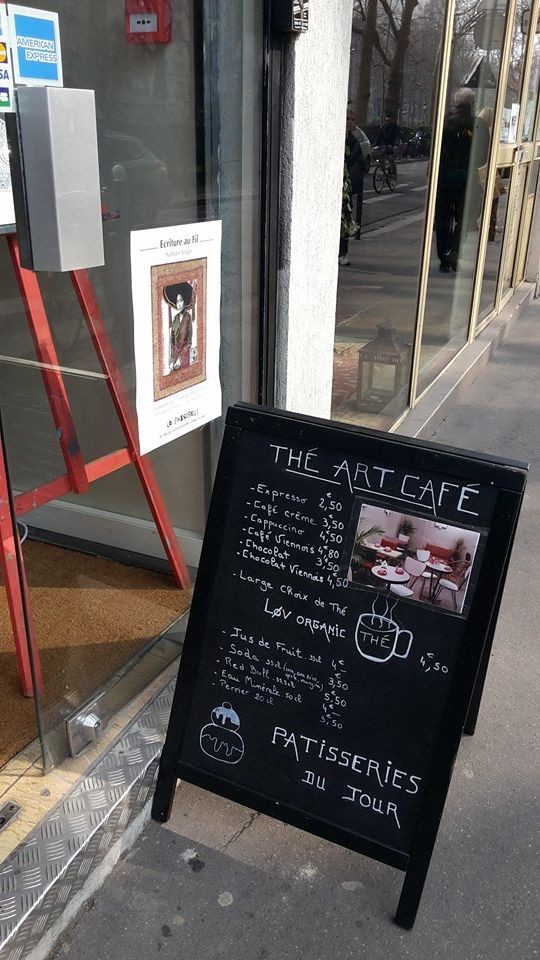 AMERICAN
EXPRESS
VISA
Ecriture au Fil
THÉ ART CAFÉ
- Expresso 2,50€
- Café crème 3,50€
- Cappuccino 4,50€
- Café Viennois 4,80€
- Chocolat 3,50€
- Chocolat Viennois 4,50
- Large Choix de Thé
LØV ORGANIC
THÉ
4,50€
- Jus de Fruit. 4€
- Soda 33cl 3,50€
- Red Bull. 5,50€
- Eau Minérale. 50cl 4€
- Perrier 20cl 3,50€
PATISSERIES
DU JOUR